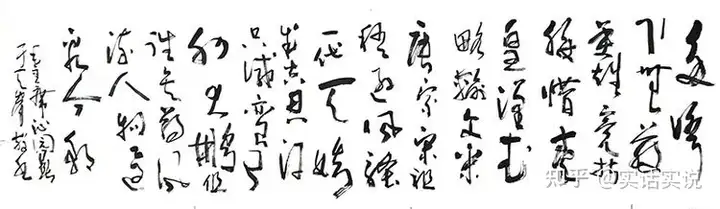 多娇
引无数
英雄竞折
腰惜秦
皇汉武
略输文采
唐宗宋祖
稍逊风骚
一代天骄
成吉思汗
只识弯弓
射大雕俱
往矣数风
流人物还
看今朝
毛主席沁园春
知乎 @实话实说